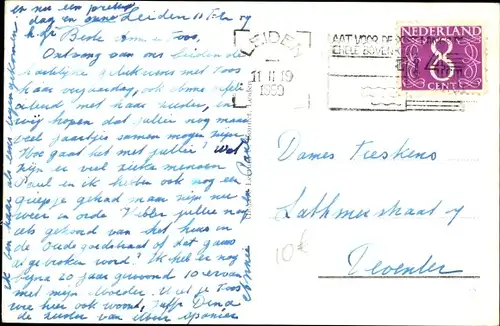 en nu een prettige
dag en onze Leiden 11 Feb 59
h.gr Beste Ann en Toos,
Ontvang van ons beiden de
hartelijke gelukwensen met Toos
haar verjaardag, ook Anne gefeli-
citeerd met haar zuster, en
wij hopen dat jullie nog maar
veel jaartjes samen mogen zijn.
Hoe gaat het met jullie? Wel
zijn er veel zieke mensen
Paul en ik hebben ook nog een
griepje gehad maar zijn nu
weer in orde. Hebben jullie nog
als gehoord van het huis in
de Oude goedstraat of dat gauw
afgebroken word? Ik heb er nog
bijna 20 jaar gewoond 10 ervan
met mijn Moeder. Weet je Toos
wie hier ook woond, Juffr. Dina
de zuster van
ik ben haar als eens tegengekomen
Annie en Paul
LEIDEN
11 II 19
1959
AAT VOOR DE
NEDERLAND
8
CENT
Dames Teeskens
Lathmerstraat 7
Deventer
10€